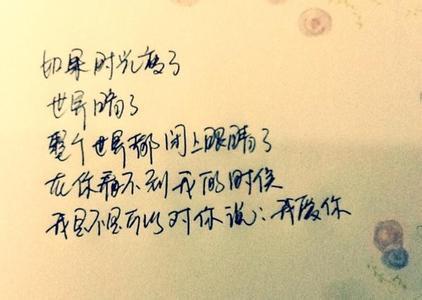 如果时光废了
世界暗了
整个世界都闭上眼睛了
在你看不到我的时候
我是不是可以对你说：我爱你